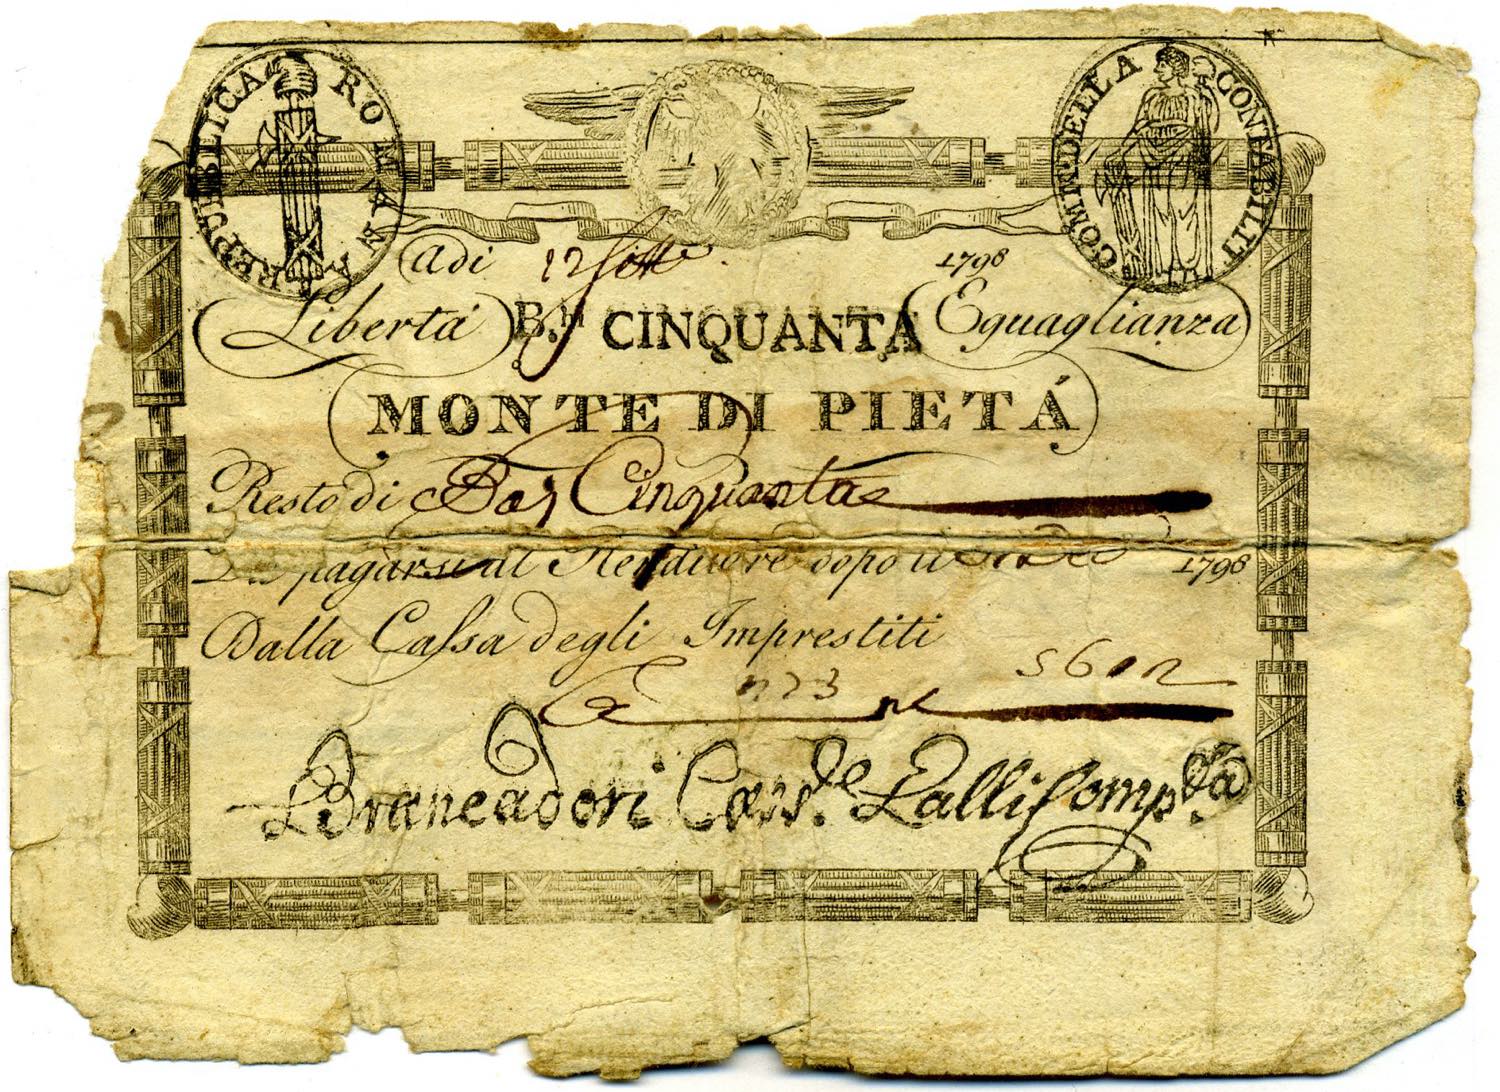 REPUBLICA ROMANA
COM. DELLA CONTABILIT
A di 12 Sette 1798
Libertá B.li CINQUANTA Eguaglianza
MONTE DI PIETÁ
Resto di Baj Cinquanta
pagarsi al dopo il 1798
Dalla Cassa degli Imprestiti
n
Cass.de Lalli Comp.ta